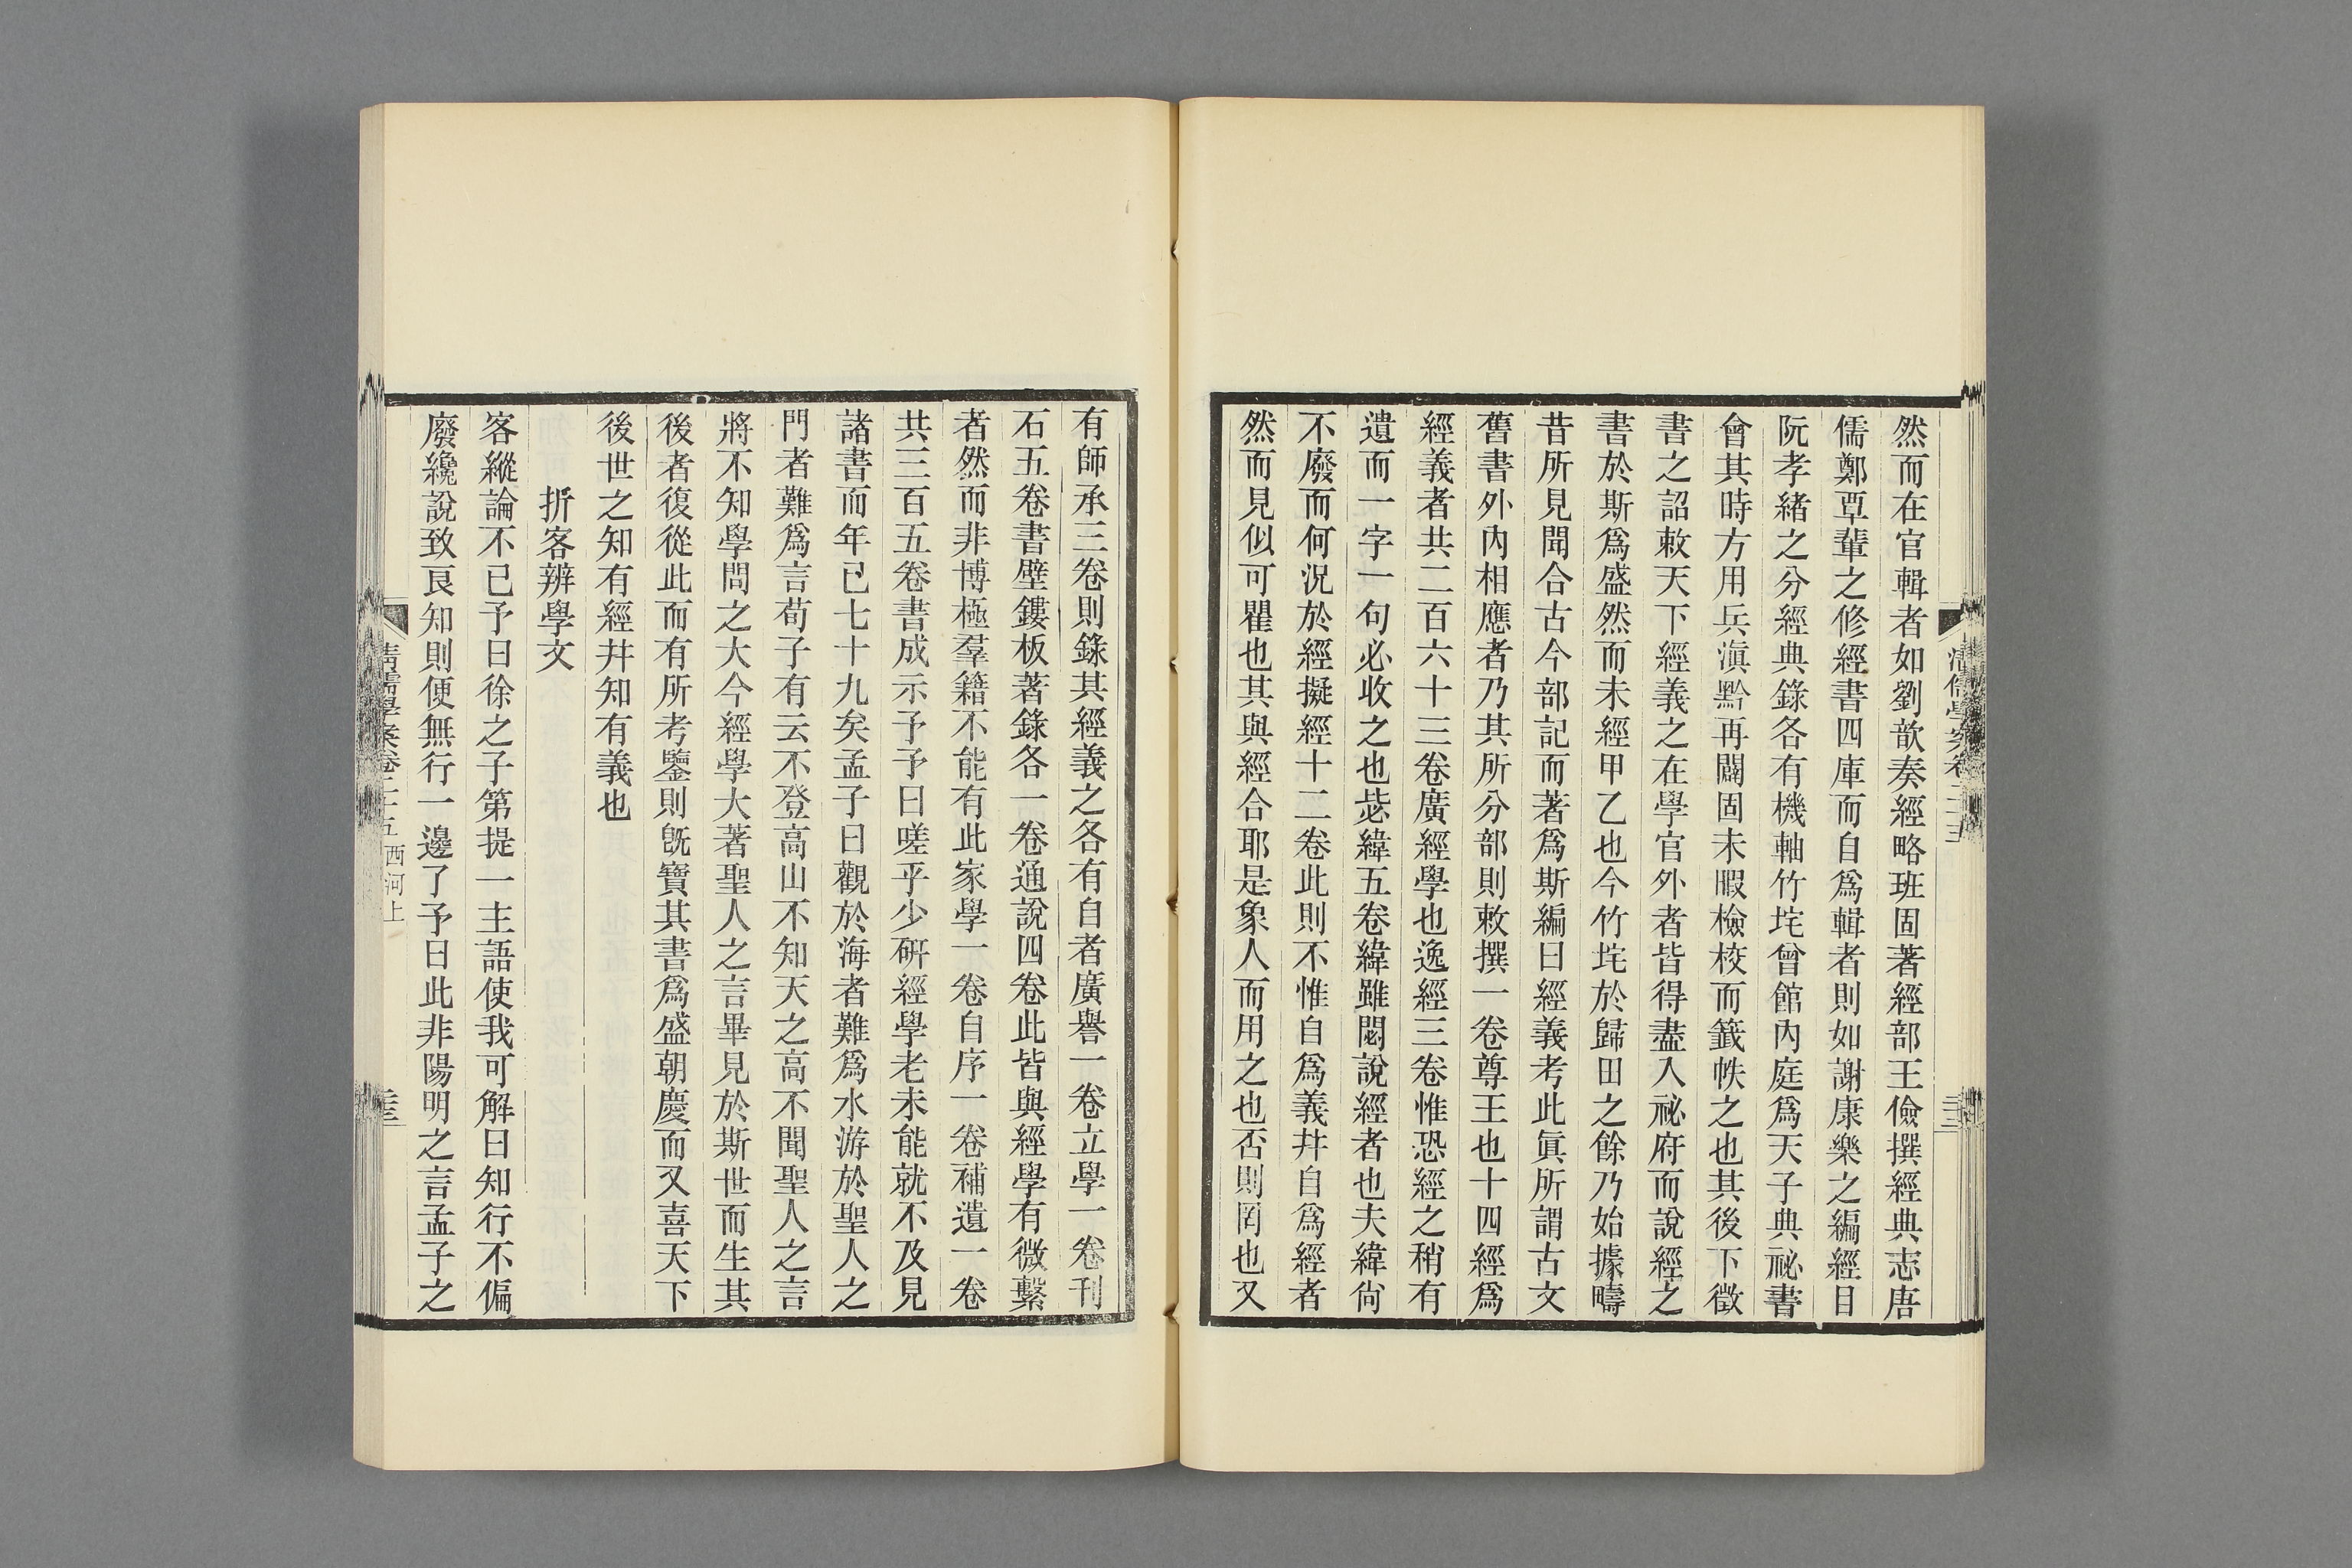 然而在官輯者如劉歆奏經略班固著經部王儉撰經典志唐
儒鄭覃輩之修經書四庫而自爲輯者則如謝康樂之編經目
阮孝緒之分經典錄各有機軸竹垞曾館內庭爲天子典祕書
會其時方用兵滇黔再闢固未暇檢校而籤帙之也其後下徵
書之詔敕天下經義之在學官外者皆得盡入祕府而說經之
書於斯爲盛然而未經甲乙也今竹垞於歸田之餘乃始據疇
昔所見聞合古今部記而著爲斯編曰經義考此眞所謂古文
舊書外內相應者乃其所分部則敕撰一卷尊王也十四經爲
經義者共二百六十三卷廣經學也逸經三卷惟恐經之稍有
遺而一字一句必收之也毖緯五卷緯雖閟說經者也夫緯尙
不廢而何況於經擬經十二卷此則不惟自爲義幷自爲經者
然而見似可瞿也其與經合耶是象人而用之也否則罔也又
有師承三卷則錄其經義之各有自者廣譽一卷立學一卷刊
石五卷書壁鏤板著錄各一卷通說四卷此皆與經學有微繫
者然而非博極羣籍不能有此家學一卷自序一卷補遺一卷
共三百五卷書成示予予曰嗟乎少硏經學老未能就不及見
諸書而年已七十九矣孟子曰觀於海者難爲水游於聖人之
門者難爲言荀子有云不登高山不知天之高不聞聖人之言
將不知學問之大今經學大著聖人之言畢見於斯世而生其
後者復從此而有所考鑒則旣寶其書爲盛朝慶而又喜天下
後世之知有經幷知有義也
折客辨學文
客縱論不已予曰徐之子第提一主語使我可解曰知行不偏
廢纔說致良知則便無行一邊了予曰此非陽明之言孟子之
清儒學案卷二十五 西河上